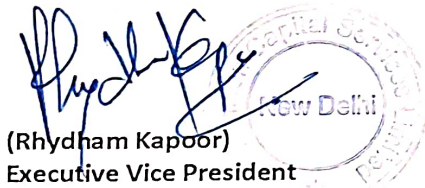 Capital Services Limited
New Delhi
(Rhydham Kapoor)
Executive Vice President